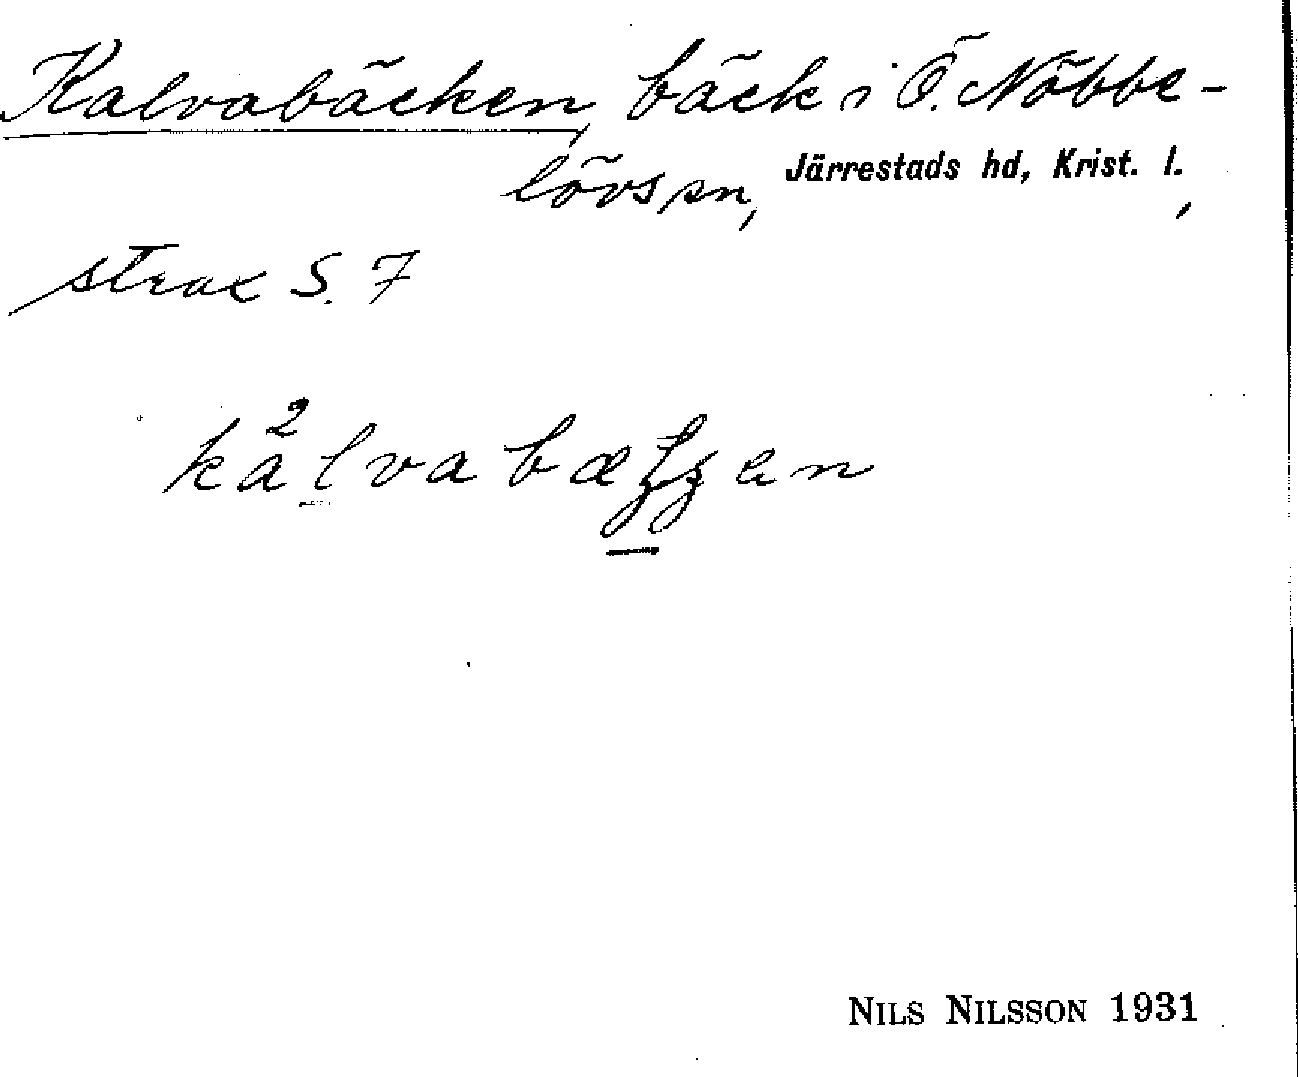 Kalvabäcken, bäck i Ö. Nöbbe-
lövs sn, Järrestads hd, Krist. l.,
strax S. 7
NILS NILSSON 1931